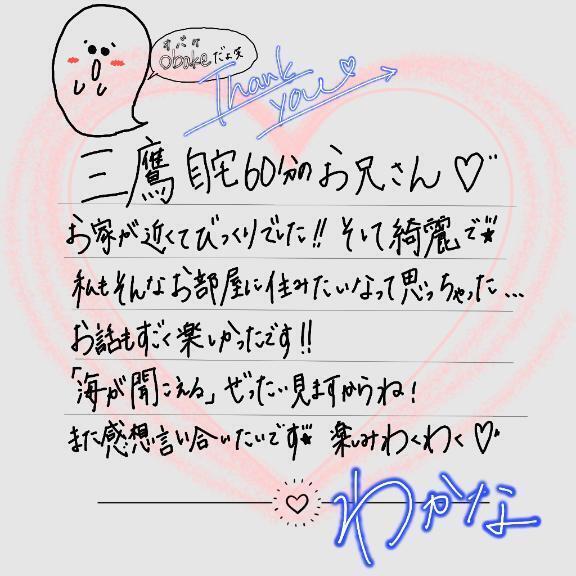 オバケ
obakeだよ笑
Thank
you♡
三鷹自宅60分のお兄さん♡
お家が近くてびっくりでした!! そして綺麗で★
私もそんなお部屋に住みたいなって思っちゃった...
お話もすごく楽しかったです!!
「海が聞こえる」ぜったい見ますからね!
また感想言い合いたいです★ 楽しみわくわく♡
わかな